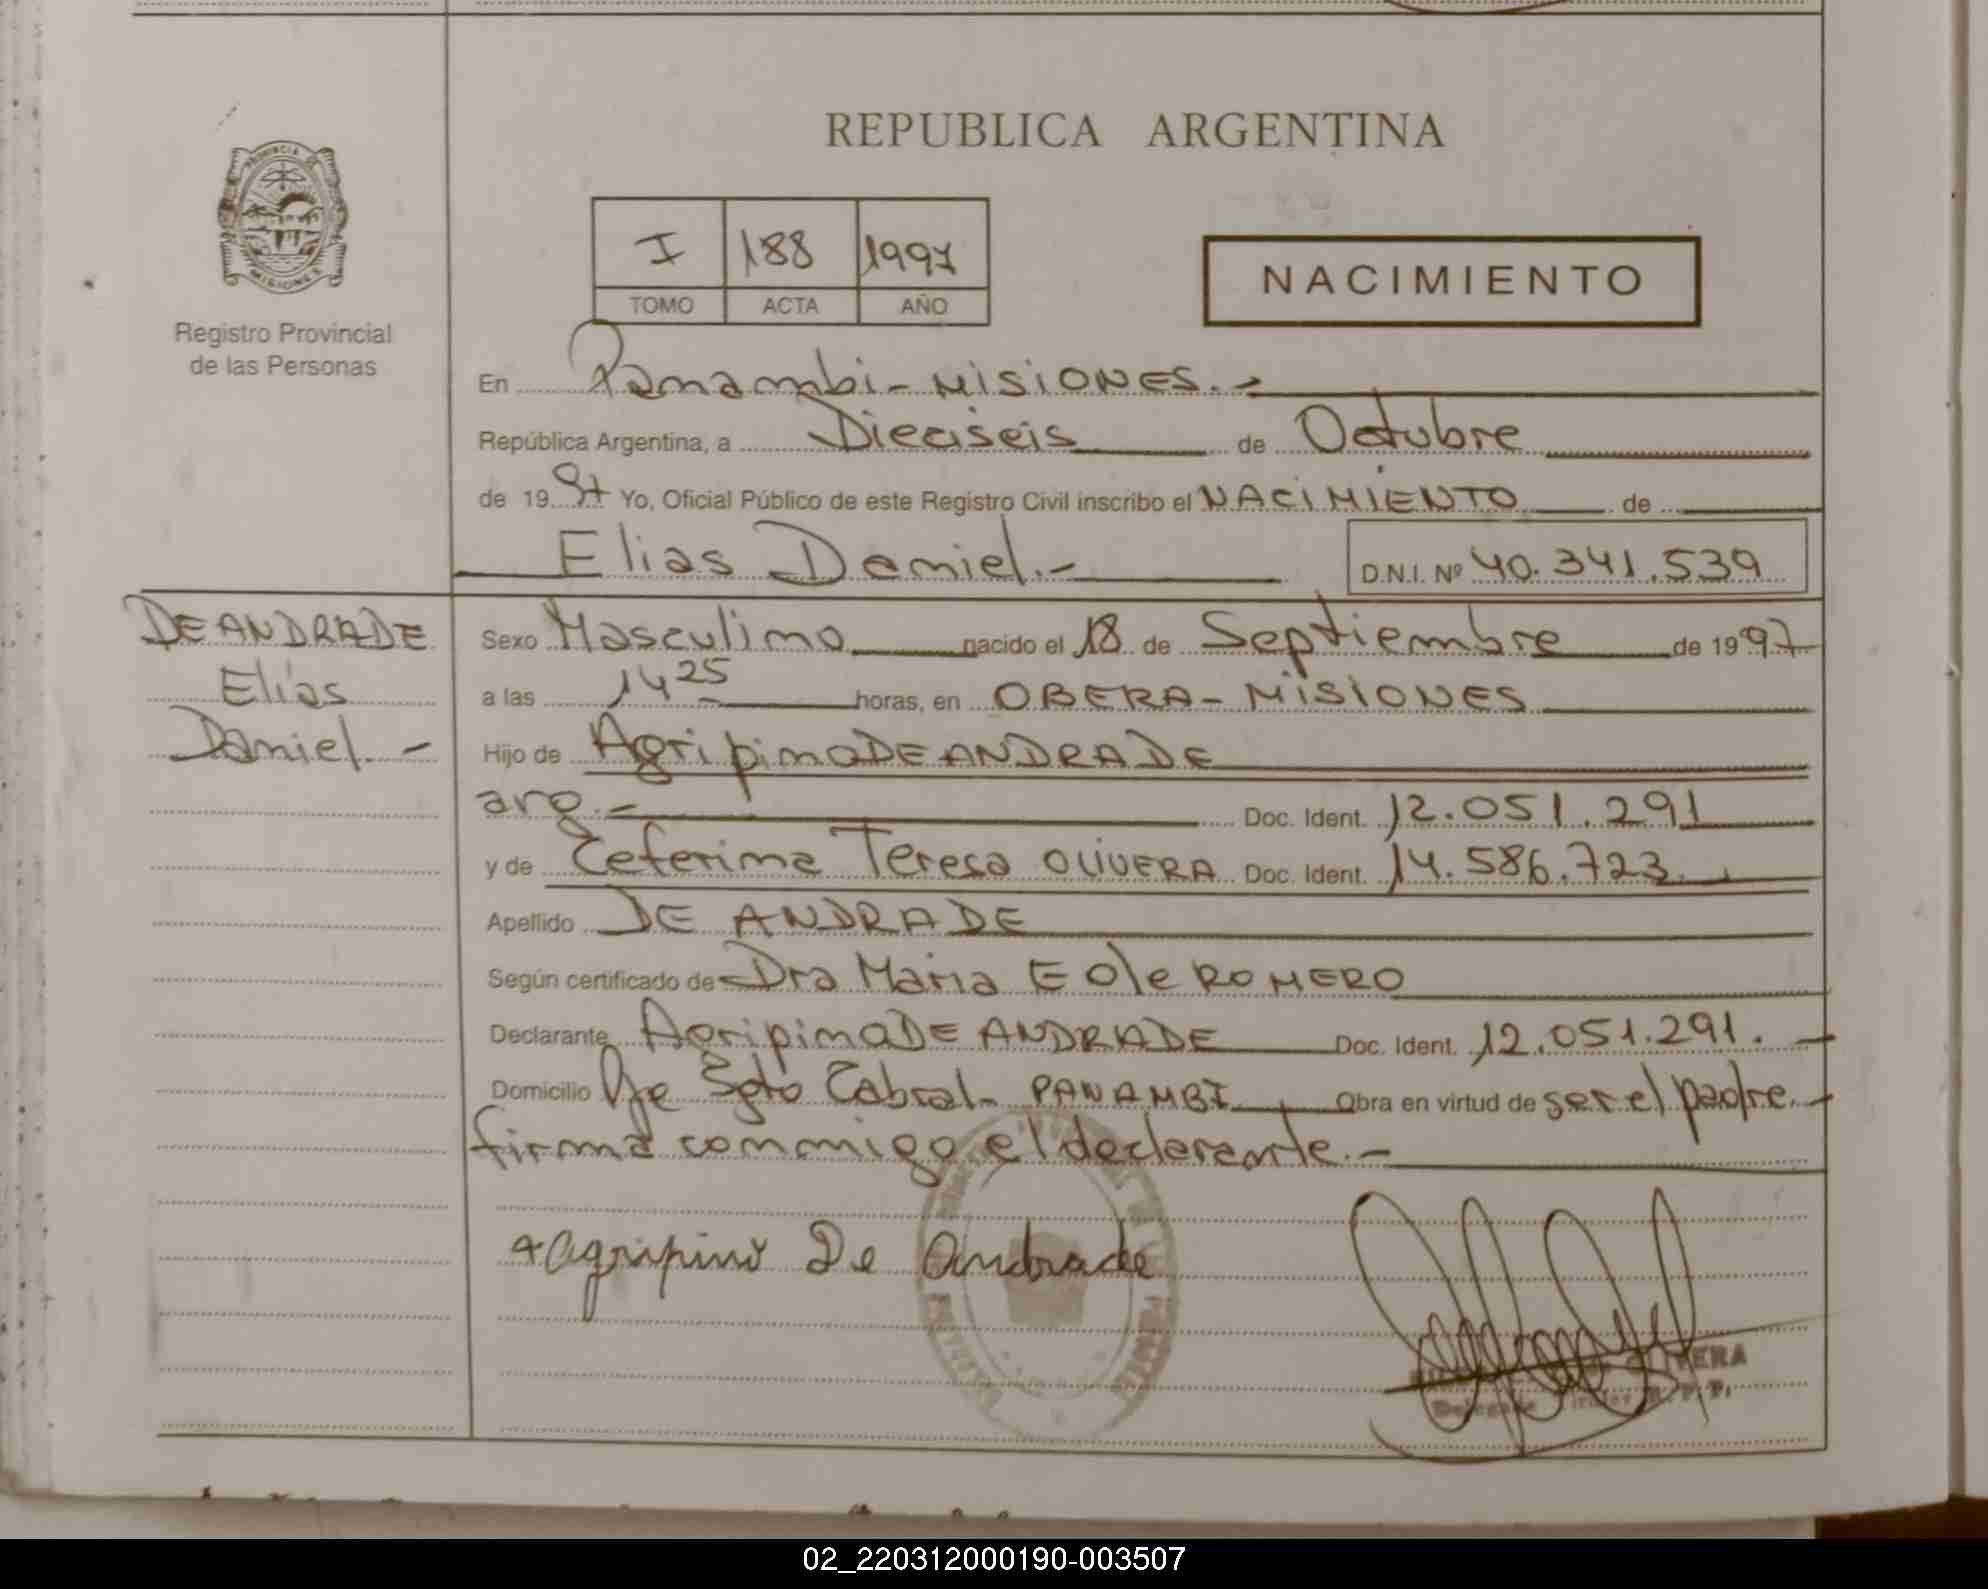 REPUBLICA ARGENTINA
PROVINCIA DE
MISIONES
Registro Provincial
de las Personas
I 188 1997
TOMO ACTA AÑO
NACIMIENTO
En Panambi - MISIONES.-
República Argentina, a Dieciseis de Octubre
de 1997 Yo, Oficial Público de este Registro Civil inscribo el NACIMIENTO de
Elias Daniel.- D.N.I. Nº 40.341.539
DE ANDRADE
Elías
Daniel.-
Sexo Masculino nacido el 18 de Septiembre de 1997
a las 14 25 horas, en OBERA - MISIONES
Hijo de Agripino DE ANDRADE
arg.- Doc. Ident. 12.051.291
y de Ceferina Teresa OLIVERA Doc. Ident. 14.586.723.
Apellido DE ANDRADE
Según certificado de Dra Maria E Ole ROMERO
Declarante Agripino DE ANDRADE Doc. Ident. 12.051.291.-
Domicilio Pje Sgto Cabral - PANAMBI Obra en virtud de ser el padre.-
firma conmigo el declarante.-
Agripino De Andrade
02_220312000190-003507